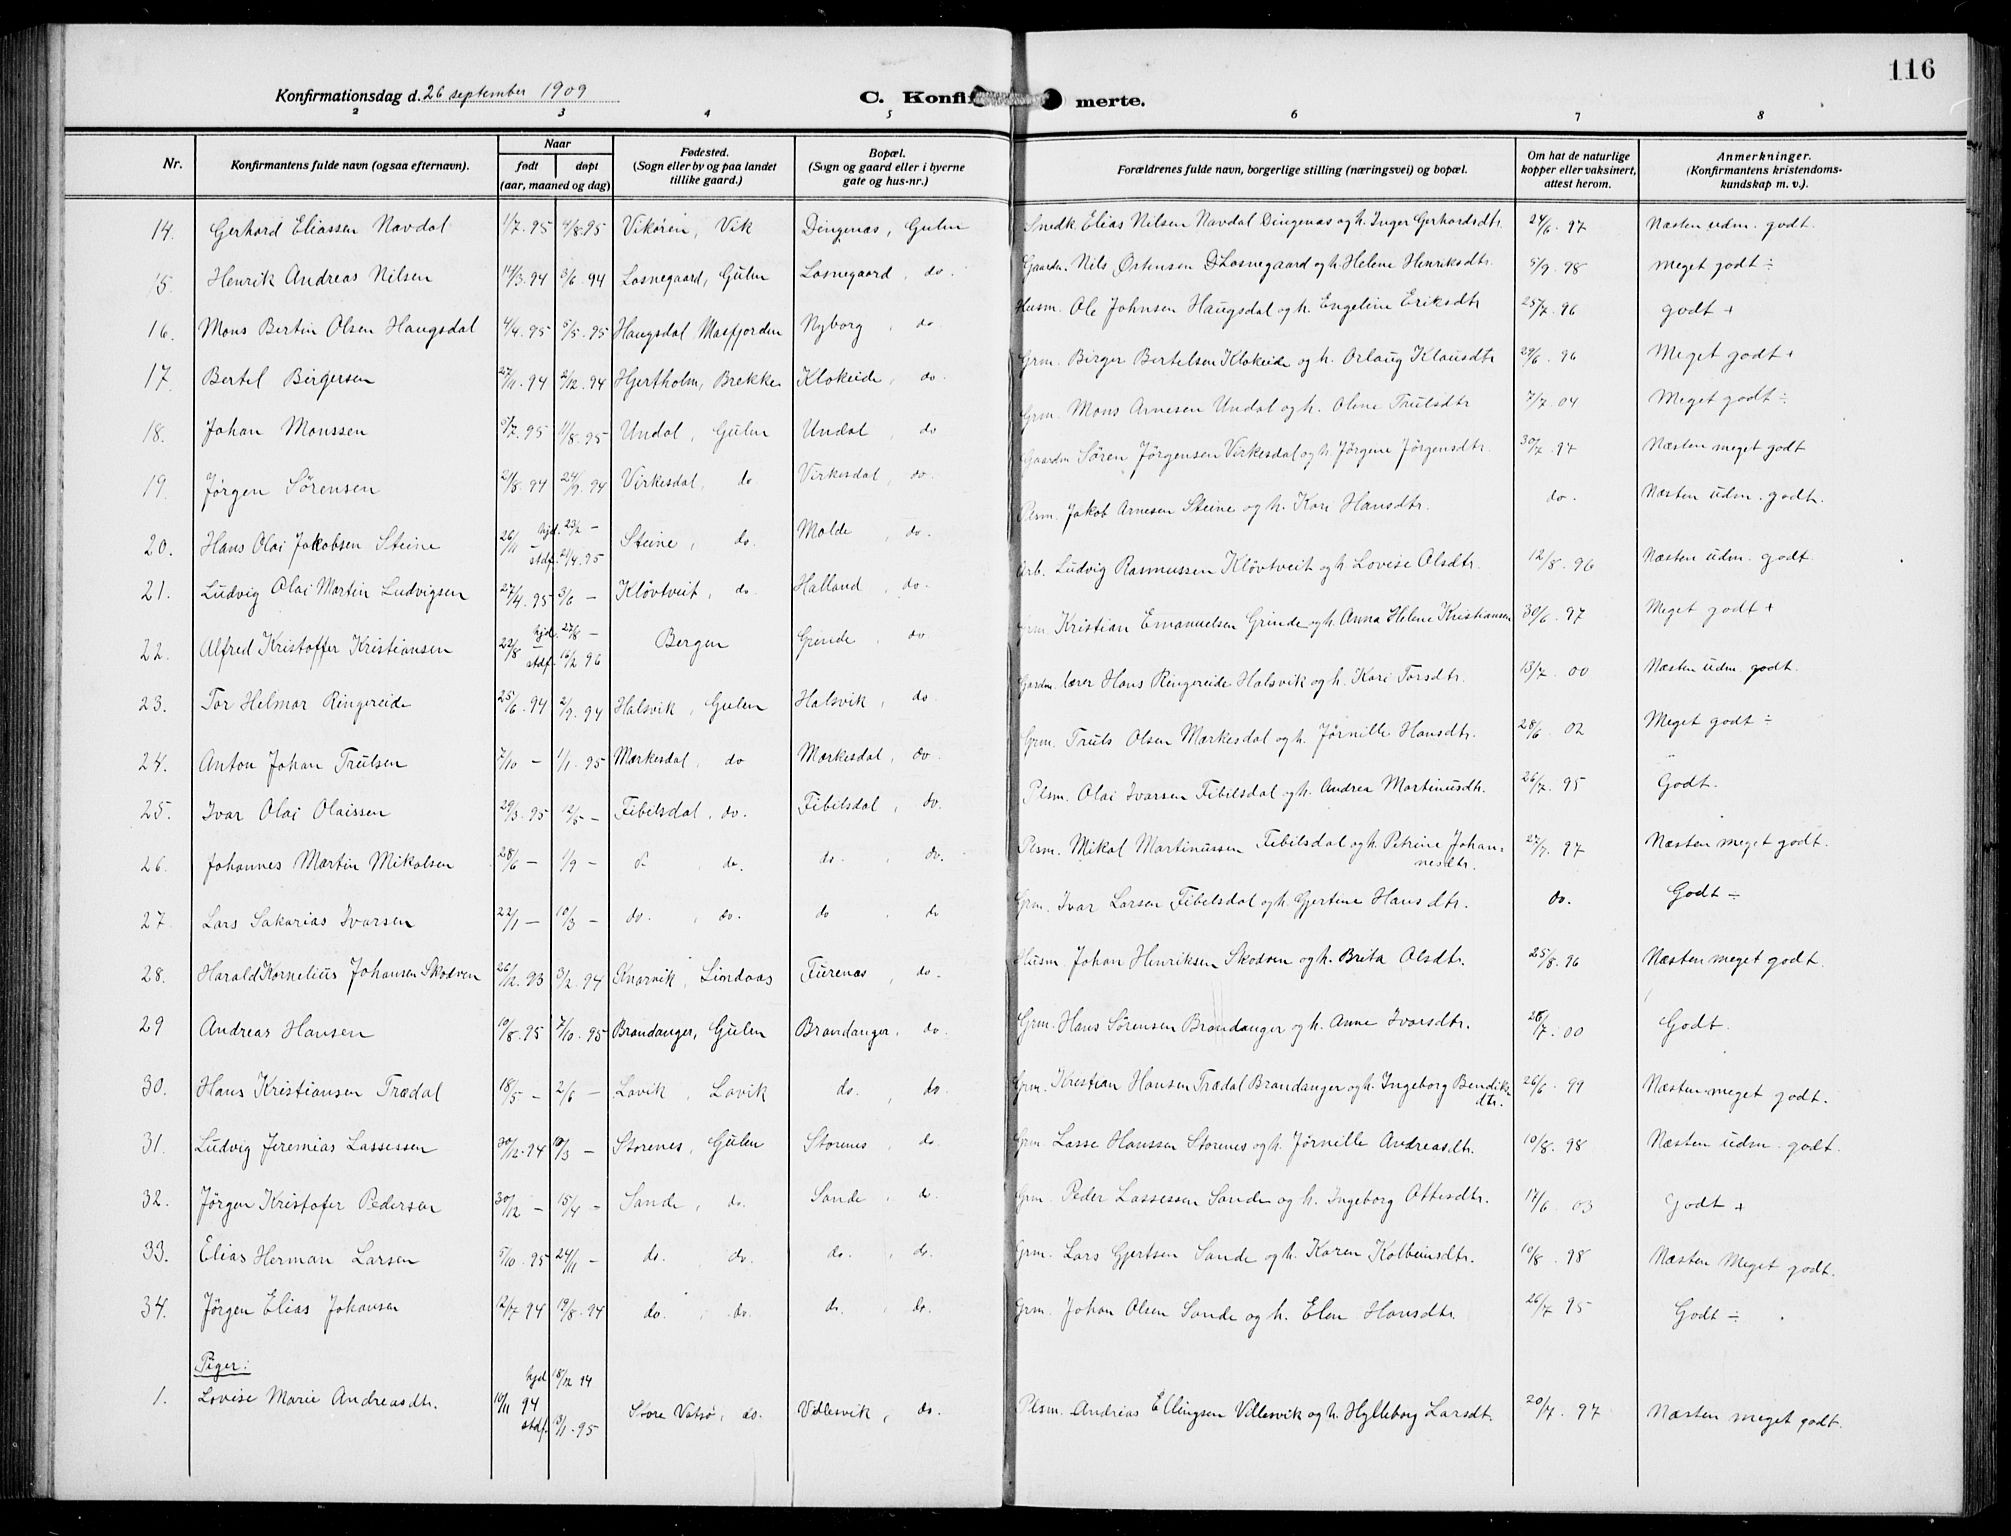 116
Konfirmationsdag d. 26 september 1909
C. Konfirmerte.
2 3 4 5 6 7 8
Nr. Konfirmantens fulde navn (ogsaa efternavn). Naar født døpt (aar, maaned og dag) Fødested. (Sogn eller by og paa landet tillike gaard.) Bopæl. (Sogn og gaard eller i byerne gate og hus-nr.) Forældrenes fulde navn, borgerlige stilling (næringsvei) og bopæl. Om hat de naturlige kopper eller vaksinert, attest herom. Anmerkninger. (Konfirmantens kristendomskundskap m. v.).
14. Gerhard Eliassen Navdal 1/7. 95 4/8. 95 Vikøren, Vik Dingenæs, Gulen Snedk. Elias Nilsen Navdal Dingenæs og h. Inger Gerhardsdtr. 24/6. 97 Næsten udm. godt.
15. Henrik Andreas Nilsen 14/3. 94 3/6. 94 Losnegaard, Gulen Losnegaard, do. Gaardm. Nils Østensen Losnegaard og h. Helene Henriksdtr. 5/9. 98 Meget godt ÷
16. Mons Bertin Olsen Haugsdal 4/4. 95 5/5. 95 Haugsdal Masfjorden Nyborg, do. Husm. Ole Johnsen Haugsdal og h. Engeline Eriksdtr 25/7. 96 godt +
17. Bertel Birgersen 27/11. 94 2/12. 94 Hjertholm, Brekke Klokeide, do. Grm. Birger Bertelsen Klokeide og h. Orlaug Klausdtr 29/6. 96 Meget godt +
18. Johan Monssen 5/7. 95 11/8. 95 Undal, Gulen Undal, do Grm. Mons Arnesen Undal og h. Oline Trulsdtr 7/7. 04 Meget godt ÷
19. Jørgen Sørensen 21/8. 94 24/9. 94 Virkesdal, do Virkesdal, do. Gaardm Søren Jørgensen Virkesdal og h. Jørgine Jørgensdtr. 30/7. 97 Næsten meget godt
20. Hans Olai Jakobsen Steine 26/11 – hjd. 23/12 – stdf. 21/4. 95 Steine, do. Molde, do. Plsm. Jakob Arnesen Steine og h. Kari Hansdtr. do. Næsten udm. godt.
21. Ludvig Olai Martin Ludvigsen 27/4. 95 3/6 – Kløvtveit, do. Halland, do. Arb. Ludvig Rasmussen Kløvtveit og h. Lovise Olsdtr. 12/8. 96 Næsten udm. godt
22. Alfred Kristoffer Kristiansen 22/8 – hjd. 27/8 – stdf. 16/2 96 Bergen Grinde, do Grm. Kristian Emanuelsen Grinde og h. Anna Helene Kristiansen 30/6. 97 Meget godt +
23. Tor Helmar Ringereide 25/6. 94 2/9. 94 Halsvik, Gulen Halsvik, do. Gardm. lærer Hans Ringereide Halsvik og h. Kari Torsdtr. 18/7. 00 Næsten udm. godt.
24. Anton Johan Trulsen 7/10 – 1/1. 95 Mærkesdal, do Mærkesdal, do. Grm. Truls Olsen Mærkesdal og h. Jørnille Hansdtr. 28/6. 02 Meget godt ÷
25. Ivar Olai Olaissen 29/3. 95 12/5 – Fibilsdal, do. Fibilsdal, do. Plsm. Olai Ivarsen Fibilsdal og h. Andrea Martinusdtr. 26/7. 95 Godt.
26. Johannes Martin Mikalsen 28/6 – 1/9 – do. do. do. Plsm. Mikal Martinussen Fibilsdal og h. Petrine Johannesdtr. 27/7. 97 Næsten meget godt.
27. Lars Sakarias Ivarsen 22/1 – 10/3 – do. , do. do , do Grm. Ivar Larsen Fibilsdal og h. Gjertine Hansdtr. do. Godt ÷
28. Harald Kornelius Johansen Skodven 26/12. 93 3/2. 94 Knarvik, Lindaas Furenæs, do. Husm. Johan Henriksen Skodven og h. Brita Olsdtr. 25/8. 96 Næsten meget godt.
29 Andreas Hansen 19/8. 95 7/10. 95 Brandanger, Gulen Brandanger, do. Grm. Hans Sørensen Brandanger og h. Anne Ivarsdtr. 26/7. 00 Godt.
30. Hans Kristiansen Trædal 18/5 – 2/6 – Lavik, Lavik do. , do. Grm. Kristian Hansen Trædal Brandanger og h. Ingeborg Bendiksdtr. 26/6. 99 Næsten meget godt.
31. Ludvig Jeremias Lassessen 30/12. 94 10/3 – Storenes, Gulen Storenes, do. Grm. Lasse Hanssen Storenes og h. Jørnille Andreasdtr. 10/8. 98 Næsten udm. godt.
32. Jørgen Kristofer Pedersen 30/12 – 15/4 – Sande, do. Sande, do. Grm. Peder Lassessen Sande og h. Ingeborg Ottesdtr. 17/6. 03 Godt +
33. Elias Herman Larsen 5/10. 95 24/11 – do. , do. do. , do. Grm. Lars Gjertsen Sande og h. Karen Kolbeinsdtr. 10/8. 98 Næsten Meget godt.
34. Jørgen Elias Johansen 12/7 94 19/8. 94 do. , do. do. , do. Grm. Johan Olsen Sande og h. Elen Hansdtr. 26/7. 95 Godt ÷
Piger:
1. Lovise Marie Andreasdtr. 16/11 94 hjd 18/12 94 stdf. 13/1. 95 Store Vatsø, do. Villesvik, do. Plsm. Andreas Ellingsen Villesvik og h. Hylleborg Larsdt. 20/7. 97 Næsten meget godt.